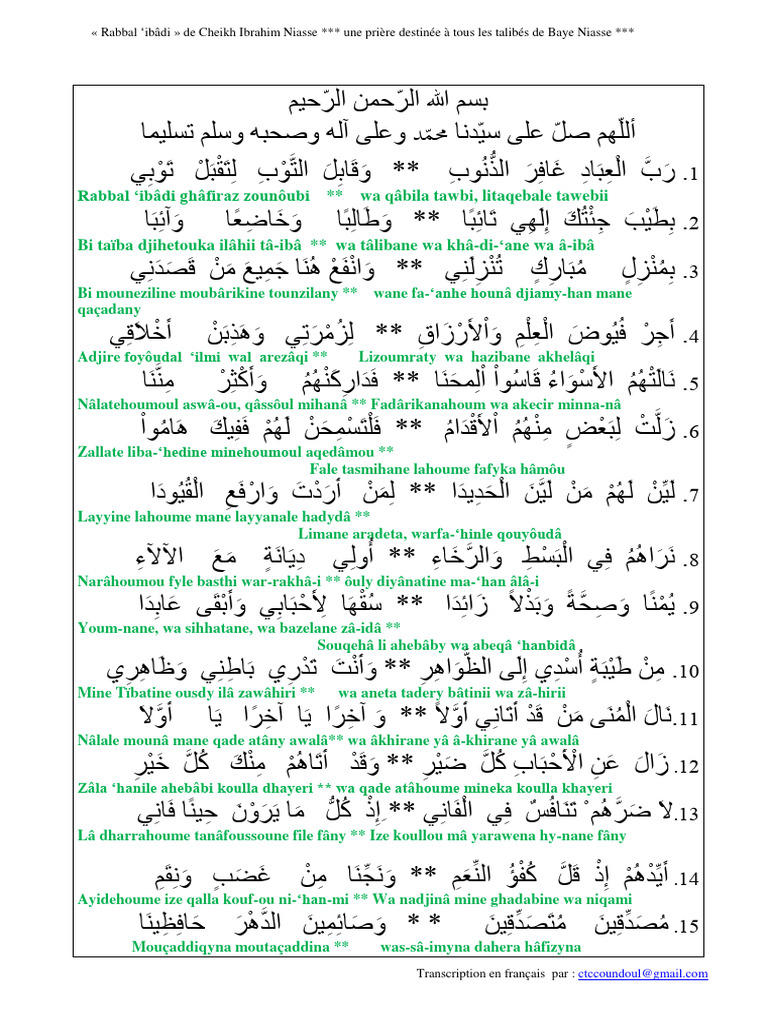 « Rabbal ‘ibâdi » de Cheikh Ibrahim Niasse *** une prière destinée à tous les talibés de Baye Niasse ***
بسم الله الرّحمن الرّحيم
أللّهم صلّ على سيّدنا محمّد وعلى آله وصحبه وسلم تسليما
1. رَبَّ الْعِبَادِ غَافِرَ الذُّنُوبِ ** وَقَابِلَ التَّوْبِ لِتَقْبَلْ تَوْبِي
Rabbal ‘ibâdi ghâfiraz zounôubi ** wa qâbila tawbi, litaqebale tawebii
2. بِطَيْبَ جِئْتُكَ إِلَهِي تَائِبًا ** وَطَالِبًا وَخَاضِعًا وَآئِبَا
Bi taïba djihetouka ilâhii tâ-ibâ ** wa tâlibane wa khâ-di-‘ane wa â-ibâ
3. بِمُنْزِلٍ مُبَارِكٍ تُنْزِلَنِي ** وَانْفَعْ هُنَا جَمِيعَ مَنْ قَصَدَنِي
Bi mouneziline moubârikine tounzilany ** wane fa-‘anhe hounâ djiamy-han mane
qaçadany
4. أَجِرْ فُيُوضَ الْعِلْمِ وَٱلْأَرْزَاقِ ** لِزُمْرَتِي وَهَذِبَنْ أَخْلَاقِي
Adjire foyôudal ‘ilmi wal arezâqi ** Lizoumraty wa hazibane akhelâqi
5. نَالَتْهُمُ الأَسْوَاءُ قَاسُواْ اْلمِحَنَا ** فَدَارِكَنْهُمُ وَأَكْثِرْ مِنَّنَا
Nâlatehoumoul aswâ-ou, qâssôul mihanâ ** Fadârikanahoum wa akecir minna-nâ
6. زَلَّتْ لِبَعْضٍ مِنْهُمُ ٱلأَقْدَامُ ** فَلْتَسْمِحَنْ لَهُمْ فَفِيكَ هَامُواْ
Zallate liba-‘hedine minehoumoul aqedâmou **
Fale tasmihane lahoume fafyka hâmôu
7. لَيِّنْ لَهُمْ مَنْ لَيَّنَ الْحَدِيدَا ** لِمَنْ أَرَدْتَ وَارْفَعِ الْقُيُودَا
Layyine lahoume mane layyanale hadydâ **
Limane aradeta, warfa-‘hinle qouyôudâ
8. نَرَاهُمُ فِي الْبَسْطِ وَالرَّخَاءِ ** أُولِي دِيَانَةٍ مَعَ الآلآءِ
Narâhoumou fyle basthi war-rakhâ-i ** ôuly diyânatine ma-‘han âlâ-i
9. يُمْنًا وَصِحَّةً وَبَذْلاً زَائِدَا ** سُقْهَا لِأَحْبَابِي وَأَبْقَى عَابِدَا
Youm-nane, wa sihhatane, wa bazelane zâ-idâ **
Souqehâ li ahebâby wa abeqâ ‘hanbidâ
10. مِنْ طَيْبَةٍ أُسْدِي إِلَى الظَّوَاهِرِ ** وَأَنْتَ تَدْرِي بَاطِنِي وَظَاهِرِي
Mine Tïbatine ousdy ilâ zawâhiri ** wa aneta tadery bâtinii wa zâ-hirii
11. نَالَ الْمُنَى مَنْ قَدْ أَتَانِي أَوَّلاً ** وَ آخِرًا يَا آخِرًا يَا أَوَّلَا
Nâlale mounâ mane qade atâny awalâ** wa âkhirane yâ â-khirane yâ awalâ
12. زَالَ عَنِ الْأَحْبَابِ كُلَّ ضَيْرِ ** وَقَدْ أَتَاهُمْ مِنْكَ كُلَّ خَيْرِ
Zâla ‘hanile ahebâbi koulla dhayeri ** wa qade atâhoume mineka koulla khayeri
13. لاَ ضَرَّهُمْ تَنَافُسٌ فِي الْفَانِي ** إِذْ كُلُّ مَا يَرَوْنَ حِينًا فَانِي
Lâ dharrahoume tanâfoussoune file fâny ** Ize koullou mâ yarawena hy-nane fâny
14. أَيِّدْهُمْ إِذْ قَلَّ كُفْؤُ النِّعَمِ ** وَنَجِّنَا مِنْ غَضَبٍ وَنِقَمِ
Ayidehoume ize qalla kouf-ou ni-‘han-mi ** Wa nadjinâ mine ghadabine wa niqami
15. مُصَدِّقِينَ مُتَصَدِّقِينَ ** وَصَائِمِينَ الدَّهْرَ حَافِظِينَا
Mouçaddiqyna moutaçaddina ** was-sâ-imyna dahera hâfizyna
Transcription en français par : ctccoundoul@gmail.com